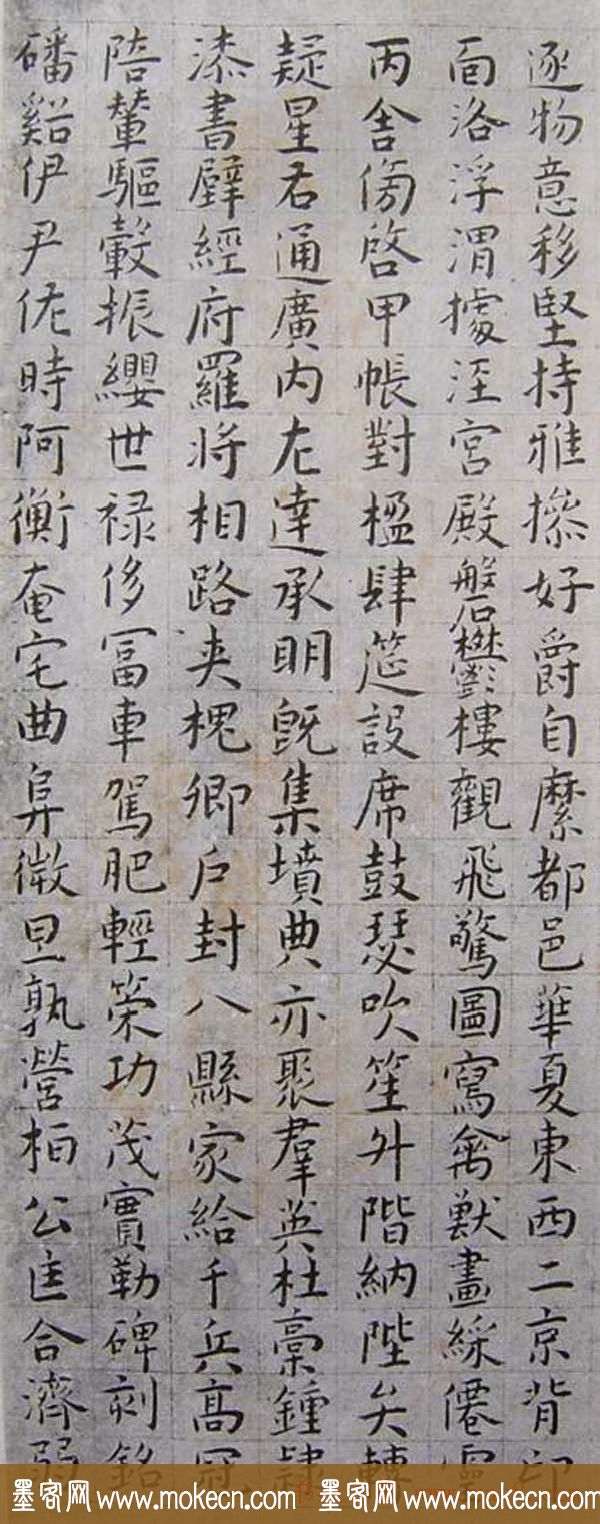 逐物意移堅持雅操好爵自縻都邑華夏東西二京背邙
面洛浮渭據涇宮殿磐鬱樓觀飛驚圖寫禽獸畫綵僊靈
丙舍傍啓甲帳對楹肆筵設席鼓瑟吹笙升階納陛弁轉
疑星右通廣內左達承明既集墳典亦聚羣英杜稾鍾隸
漆書壁經府羅將相路夾槐卿戶封八縣家給千兵高冠
陪輦驅轂振纓世祿侈富車駕肥輕策功茂實勒碑刻銘
磻谿伊尹佐時阿衡奄宅曲阜微旦孰營桓公匡合濟弱
墨客网www.mokecn.com 墨客网www.mokecn.com